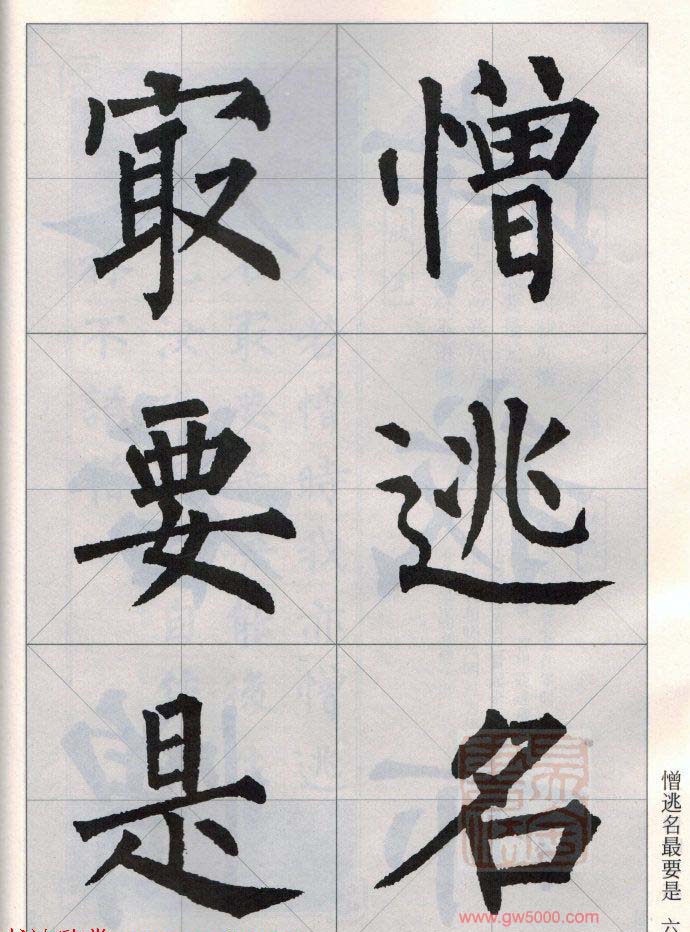 憎逃名
冣要是
憎逃名最要是 六
www.gw5000.com